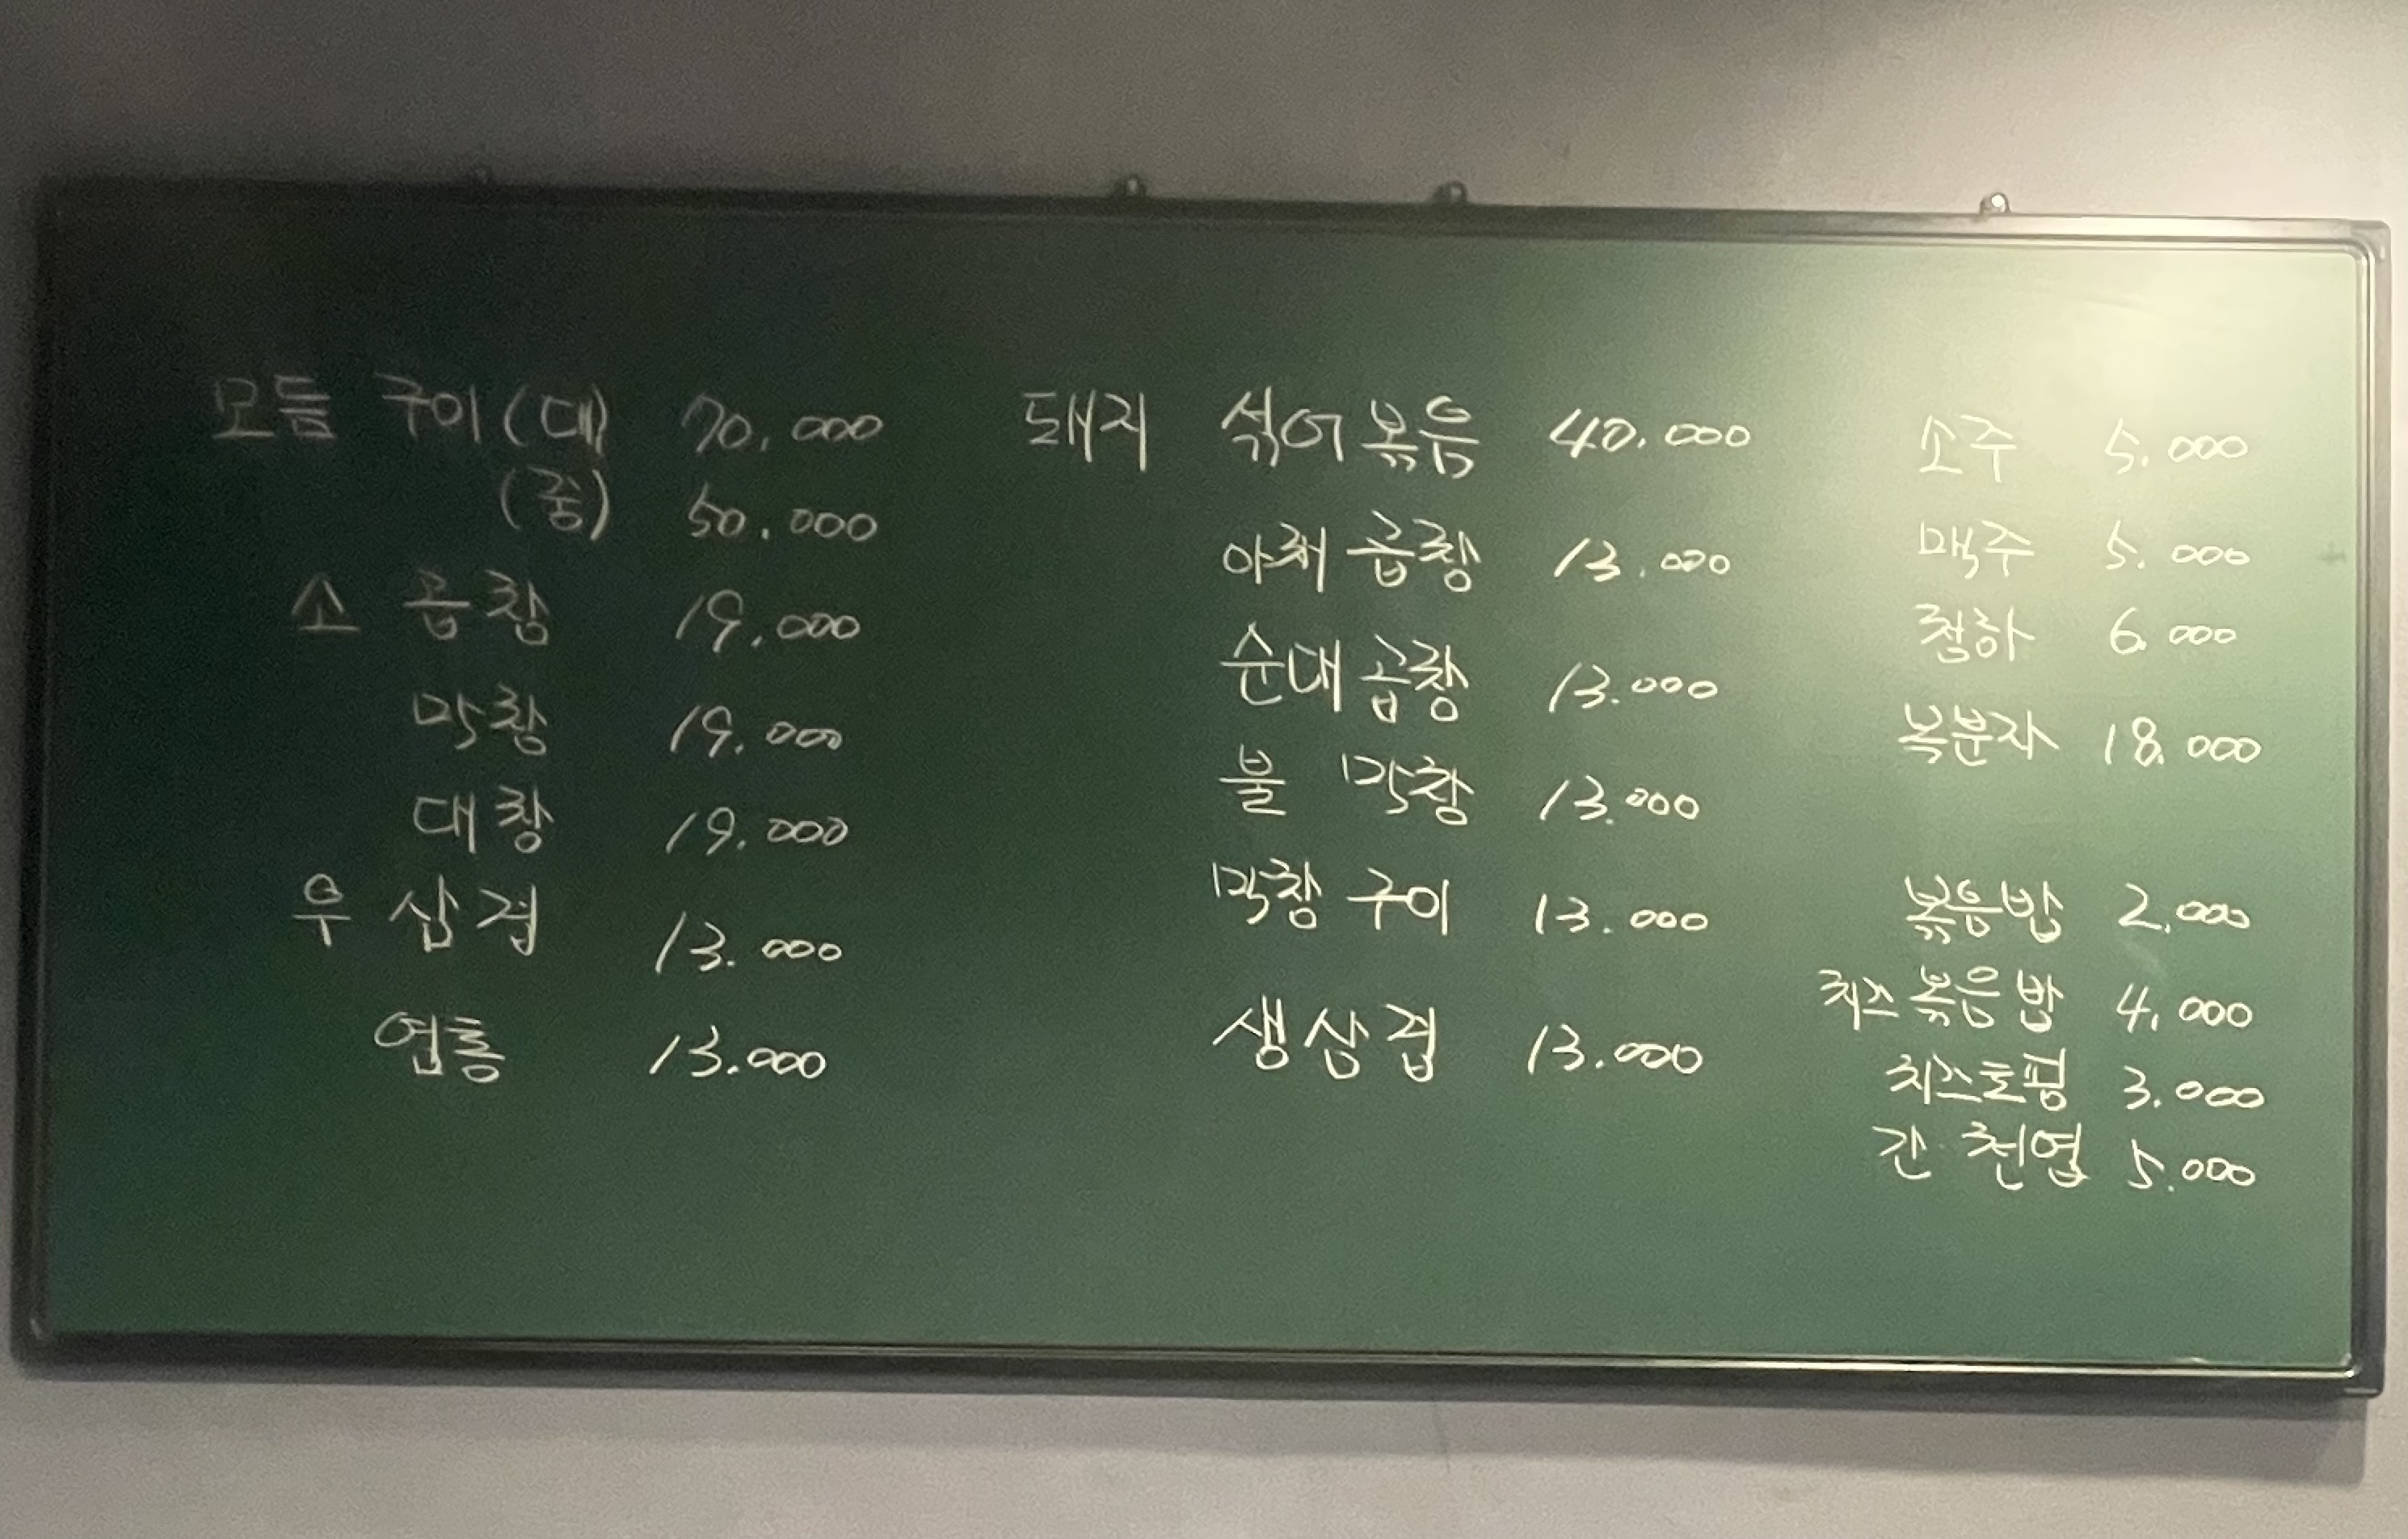 모듬 구이(대) 70.000
(중) 50.000
소 곱창 19.000
막창 19.000
대창 19.000
우 삼겹 13.000
염통 13.000
돼지 섞어볶음 40.000
야채곱창 13.000
순대곱창 13.000
불 막창 13.000
막창 구이 13.000
생삼겹 13.000
소주 5.000
맥주 5.000
청하 6.000
복분자 18.000
볶음밥 2.000
치즈볶음밥 4.000
치즈토핑 3.000
간·천엽 5.000